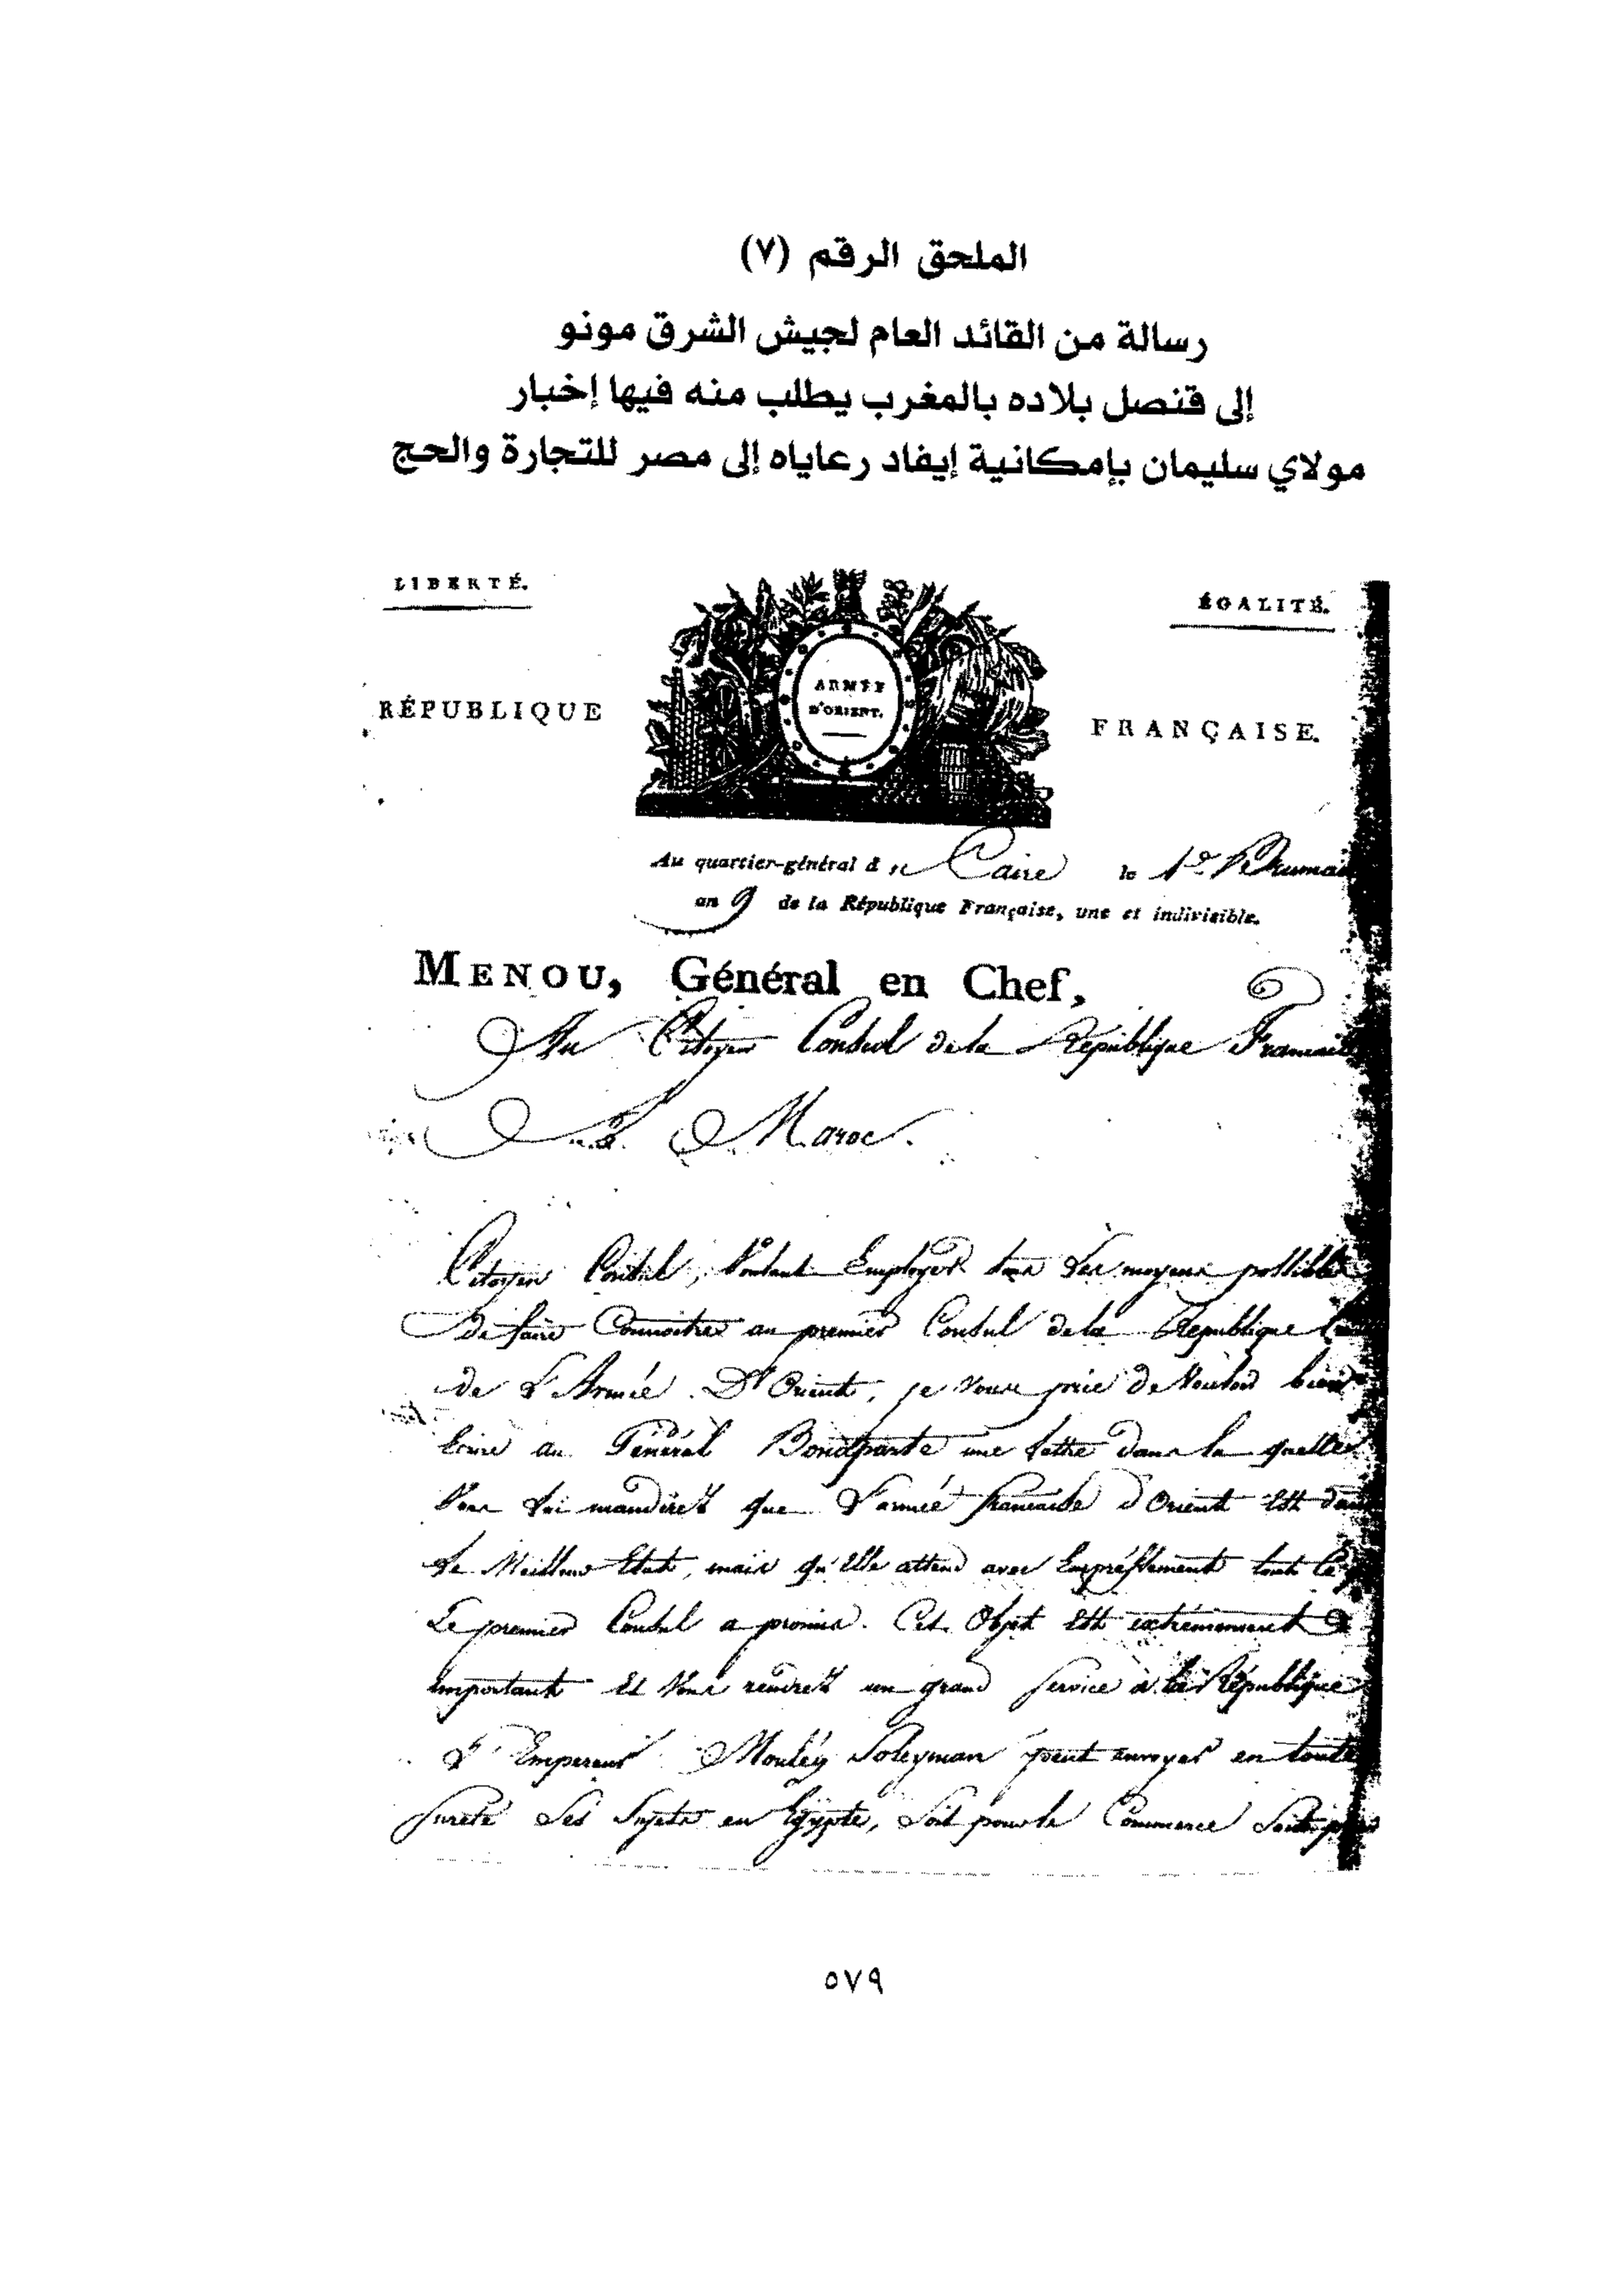 الملحق الرقم (٧)
رسالة من القائد العام لجيش الشرق مونو
إلى قنصل بلاده بالمغرب يطلب منه فيها إخبار
مولاي سليمان بإمكانية إيفاد رعاياه إلى مصر للتجارة والحج
LIBERTÉ.
ÉGALITÉ.
ARMÉE
D'ORIENT.
RÉPUBLIQUE
FRANÇAISE.
Au quartier-général à Caire le
an 9 de la République Française, une et indivisible.
MENOU, Général en Chef,
Au Citoyen Consul de la République
Maroc.
Citoyen Consul, Voulant Employer tous Les moyens
de faire Connoitre au premier Consul de la République
de L'Armée D'Orient, je Vous prie de Vouloir bien
Ecrire au Général Bonaparte une Lettre dans la quelle
Vous Lui mandirez que L'armée francaise d'Orient Est dans
Le Meilleur Etat, mais qu'Elle attend avec Empressement tout
Le premier Consul a promis. Cet Objet Est extrêmement
important Et Vous rendrez un grand Service à la République
L'Empereur Mouley Soleyman peut envoyer en toute
Sureté Ses Sujets en Egypte, Soit pour le Commerce Soit
٥٧٩